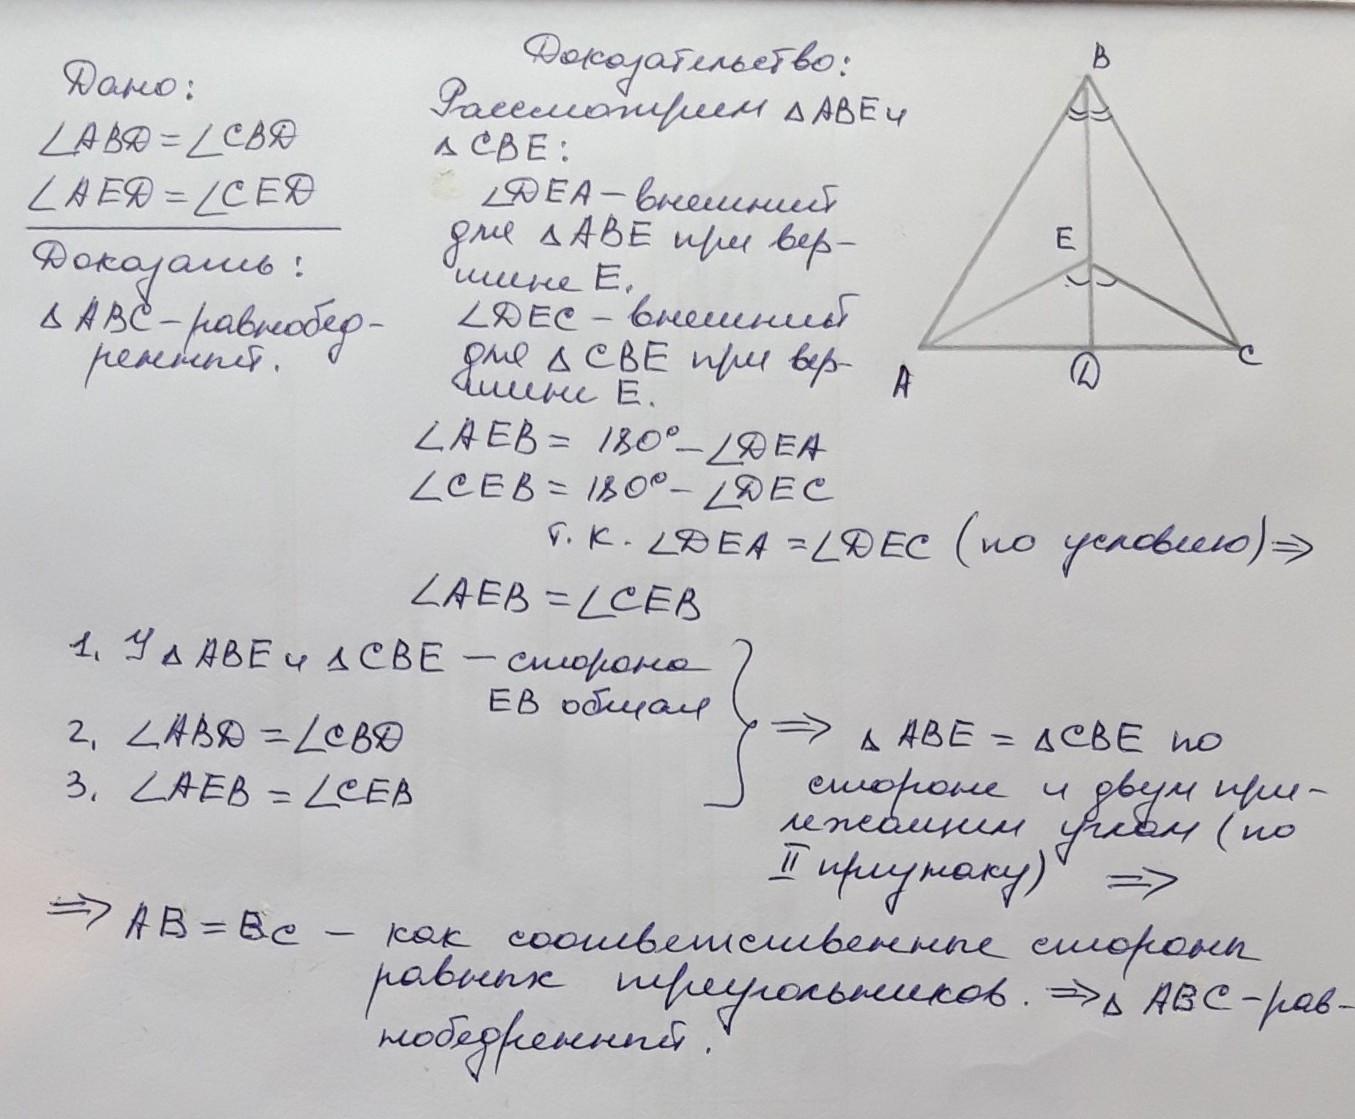 Дано:
∠ABD = ∠CBD
∠AED = ∠CED
Доказать:
△ABC – равнобед-
ренный.
Доказательство:
Рассмотрим △ABE и
△CBE:
∠DEA – внешний
для △ABE при вер-
шине E.
∠DEC – внешний
для △CBE при вер-
шине E.
∠AEB = 180° – ∠DEA
∠CEB = 180° – ∠DEC
т. к. ∠DEA = ∠DEC (по условию) ⇒
∠AEB = ∠CEB
B
E
A
D
C
1. У △ABE и △CBE – сторона
EB общая
2. ∠ABD = ∠CBD
3. ∠AEB = ∠CEB
⇒ △ABE = △CBE по
стороне и двум при-
лежащим углам (по
II признаку) ⇒
⇒ AB = BC – как соответственные стороны
равных треугольников. ⇒ △ABC – рав-
нобедренный.